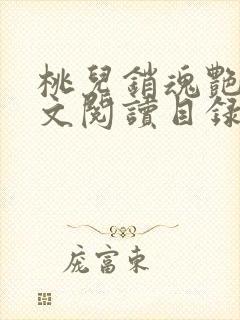 桃兒銷魂艷
文閱讀目録
庞富東